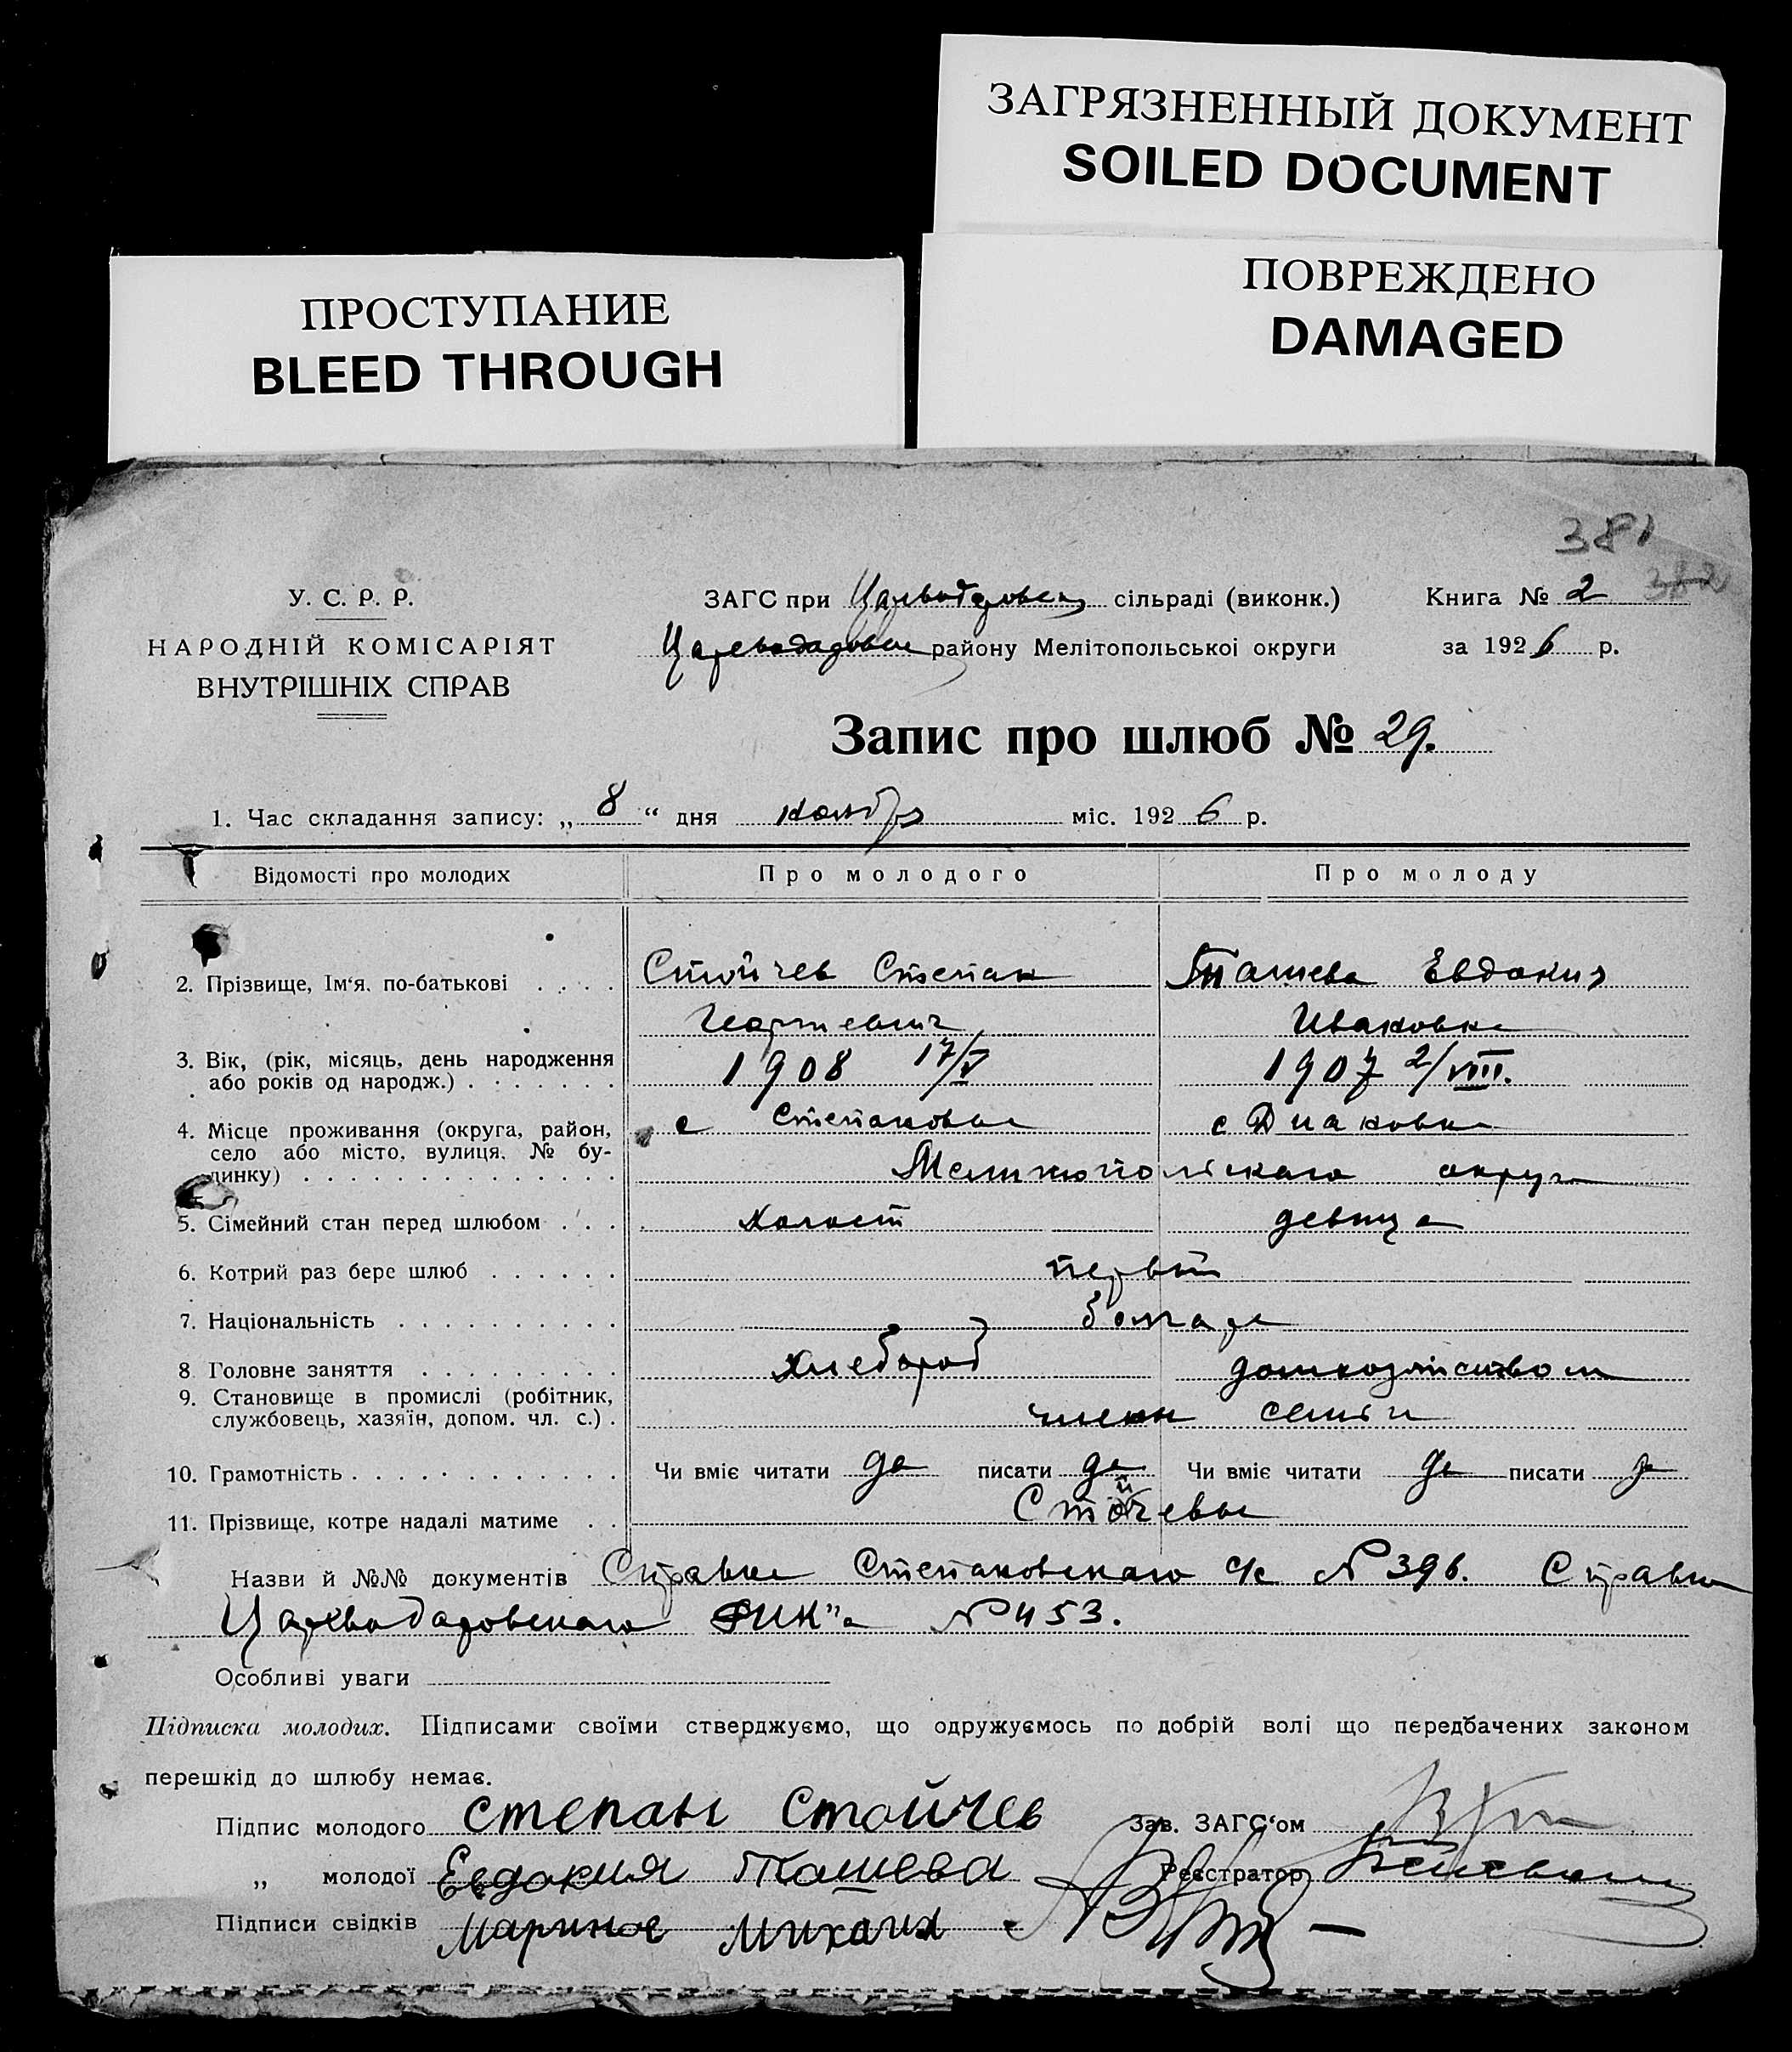 ЗАГРЯЗНЕННЫЙ ДОКУМЕНТ
SOILED DOCUMENT
ПРОСТУПАНИЕ
BLEED THROUGH
ПОВРЕЖДЕНО
DAMAGED
381
382
У. С. Р. Р.
НАРОДНІЙ КОМІСАРІЯТ
ВНУТРІШНІХ СПРАВ
ЗАГС при сільраді (виконк.)
району Мелітопольської округи
Книга № 2
за 1926 р.
Запис про шлюб № 29.
1. Час складання запису: „ 8 “ дня ноября міс. 1926 р.
Відомості про молодих Про молодого Про молоду
2. Прізвище, Ім'я, по-батькові . . . . Стойчев Степан Ташева Евдокия
Георгиевич Ивановна
3. Вік, (рік, місяць, день народження 1908 17/V 1907 2/VIII.
або років од народж.) . . . . . . .
4. Місце проживання (округа, район, с Степановка с Диаковка
село або місто, вулиця, № бу-
динку) . . . . . . . . . . . . . . Мелитопольского округа
5. Сімейний стан перед шлюбом . . . холост девица
6. Котрий раз бере шлюб . . . . . . первый
7. Національність . . . . . . . . . . болгаре
8 Головне заняття . . . . . . . . . хлебороб домхозяйством
9. Становище в промислі (робітник,
службовець, хазяїн, допом. чл. с.) . члены семьи
10. Грамотність . . . . . . . . . . . . Чи вміє читати да писати да Чи вміє читати да писати да
11. Прізвище, котре надалі матиме . . Стойчевы
Назви й №№ документів Справка Степановского с/с № 396. Справка
Цареводаровского РИК"а № 453.
Особливі уваги
Підписка молодих. Підписами своїми стверджуємо, що одружуємось по добрій волі що передбачених законом
перешкід до шлюбу немає.
Підпис молодого Степан Стойчев Зав. ЗАГС'ом
„ молодої Евдокия Ташева Реєстратор
Підписи свідків Маринов Михаил